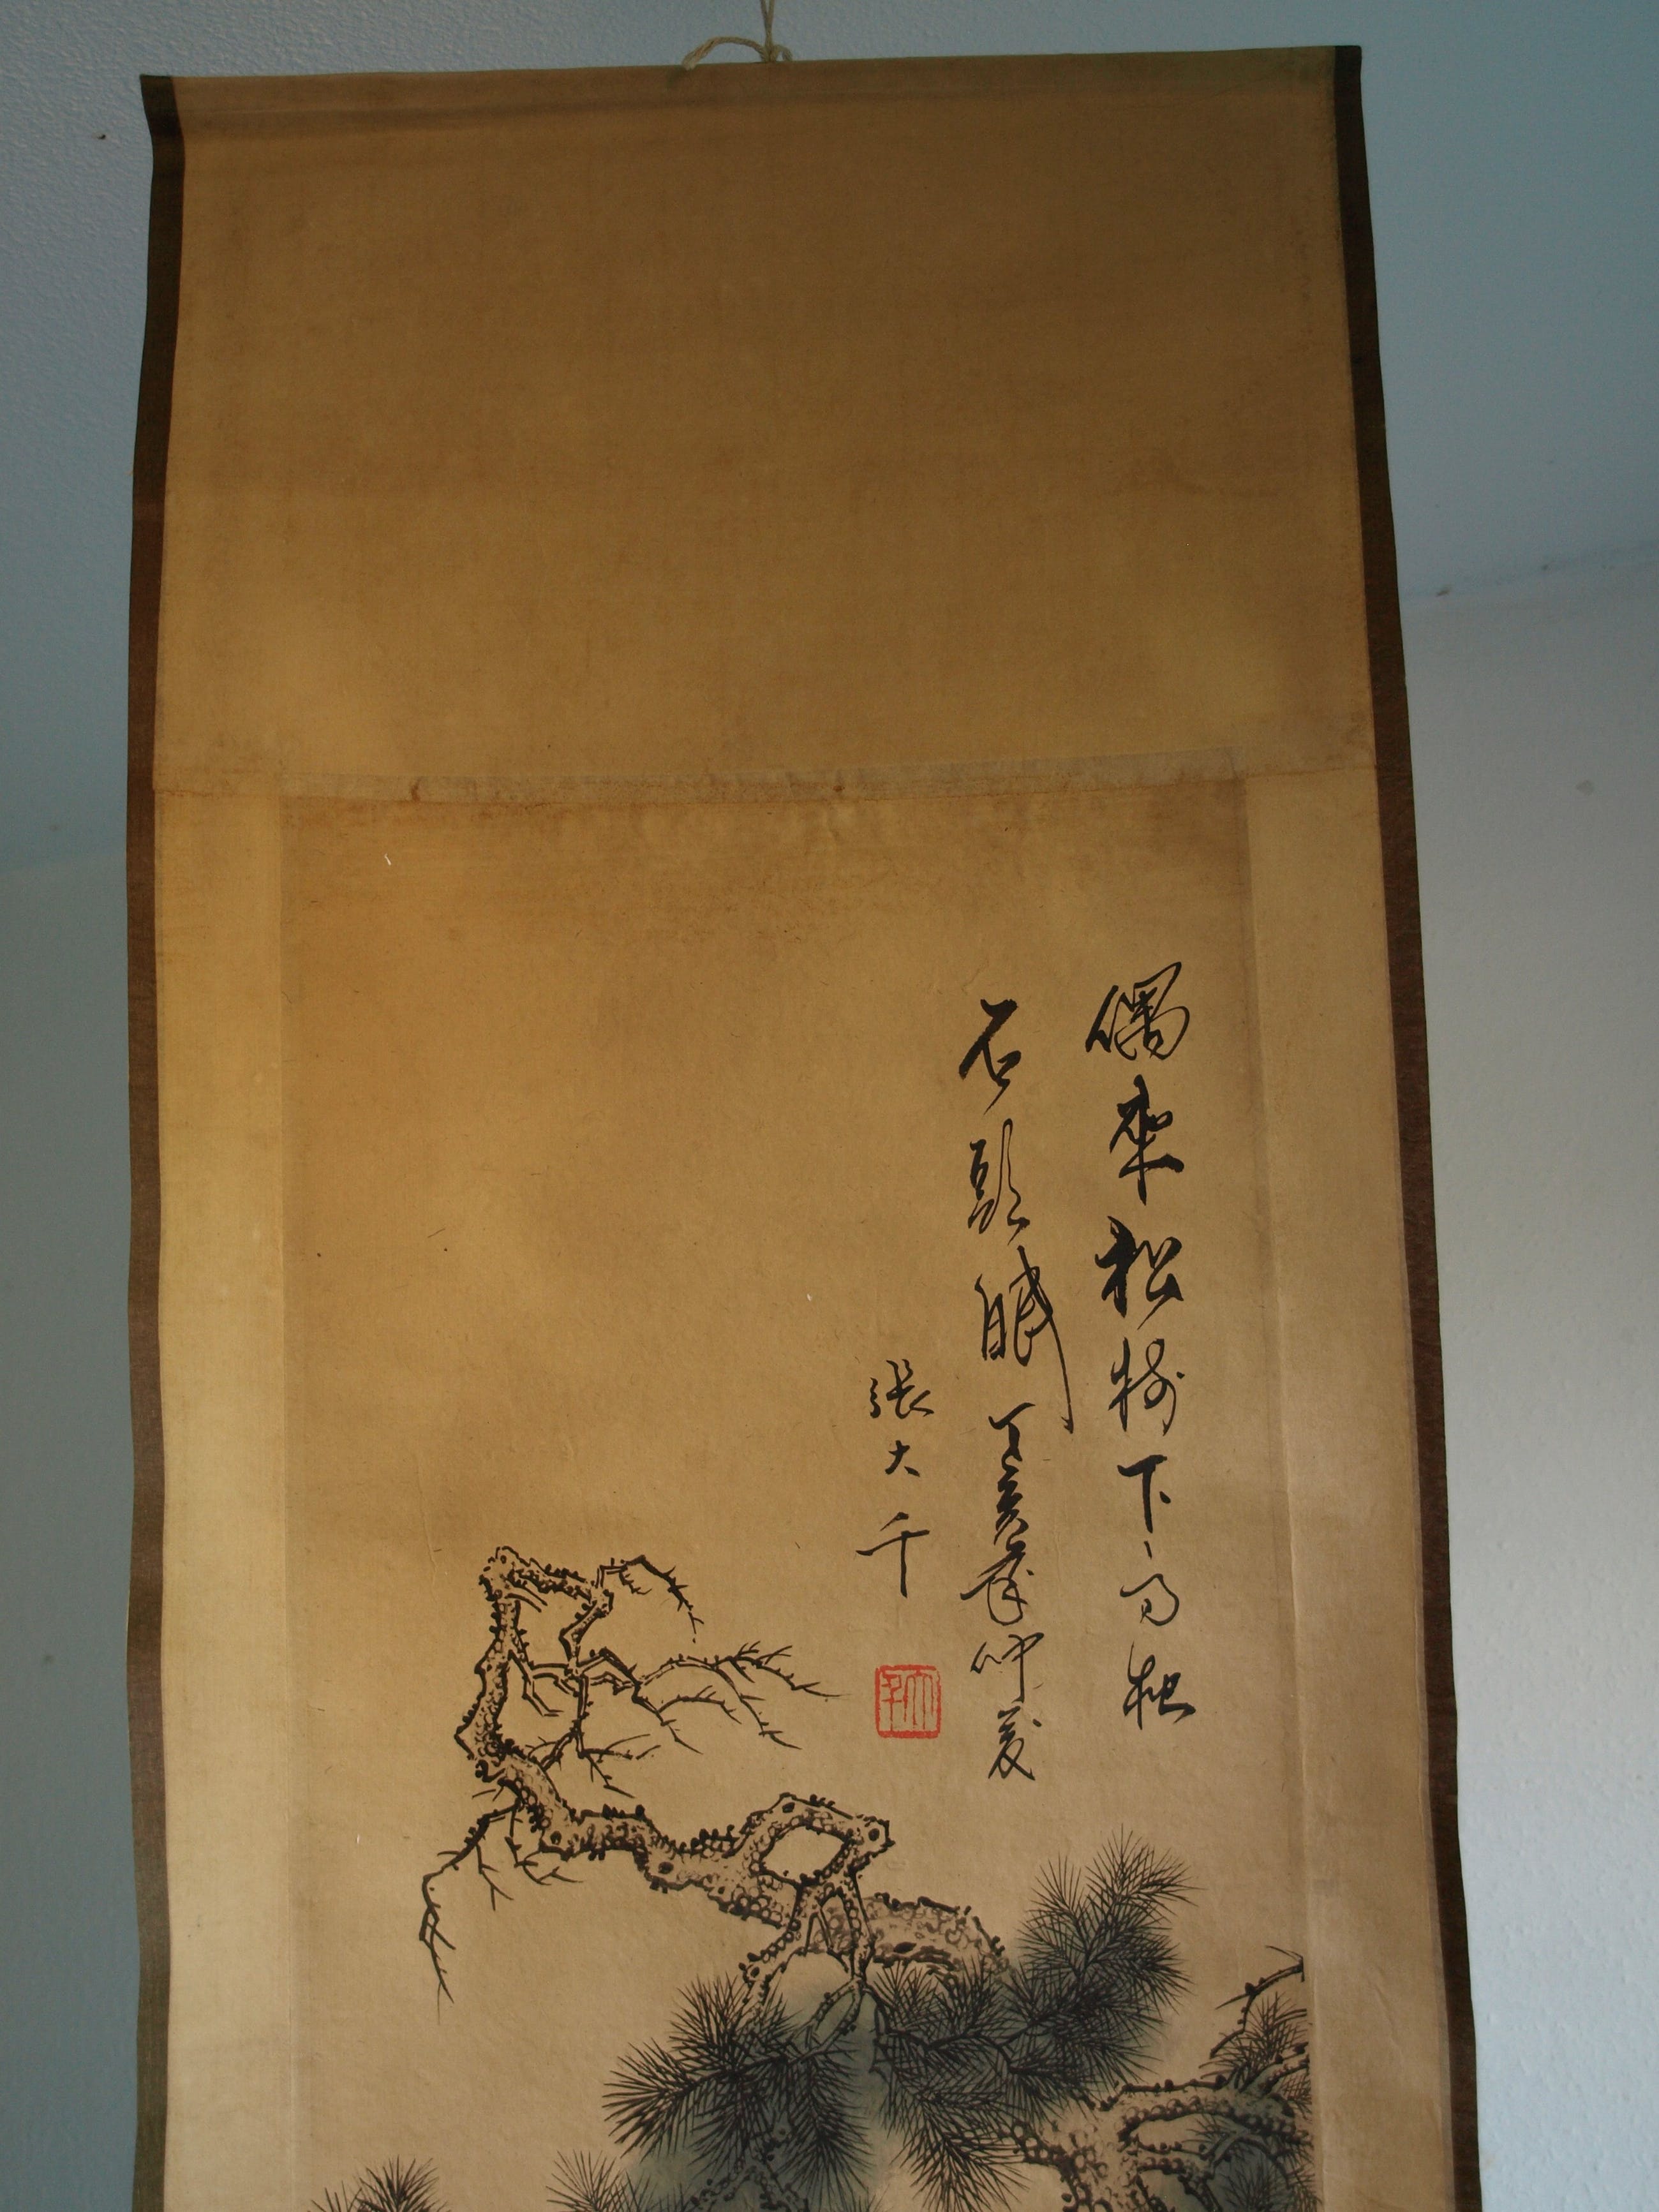 偶來松樹下高枕
石頭眠丁亥年仲夏
張大千